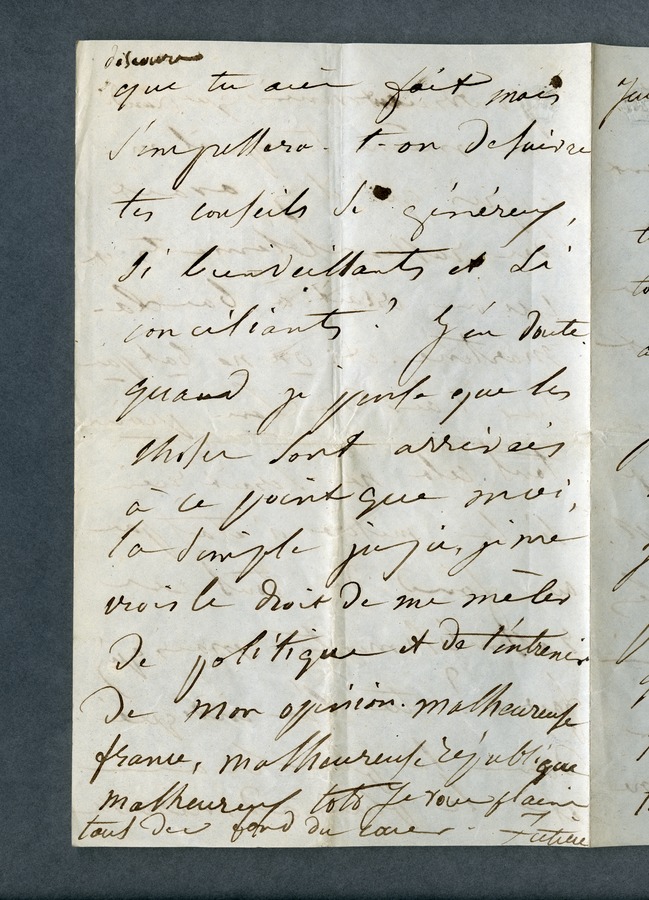 discours
que tu aies fait mais
s'empressera-t-on de suivre
tes conseils si généreux,
si bienveillants et si
conciliants? J'en doute
quand je pense que les
choses sont arrivées
à ce point que moi,
la simple juju, je me
crois le droit de me mêler
de politique et de t'entretenir
de mon opinion. malheureuse
france, malheureuse république
malheureux toto je vous plains
tous du fond du cœur.